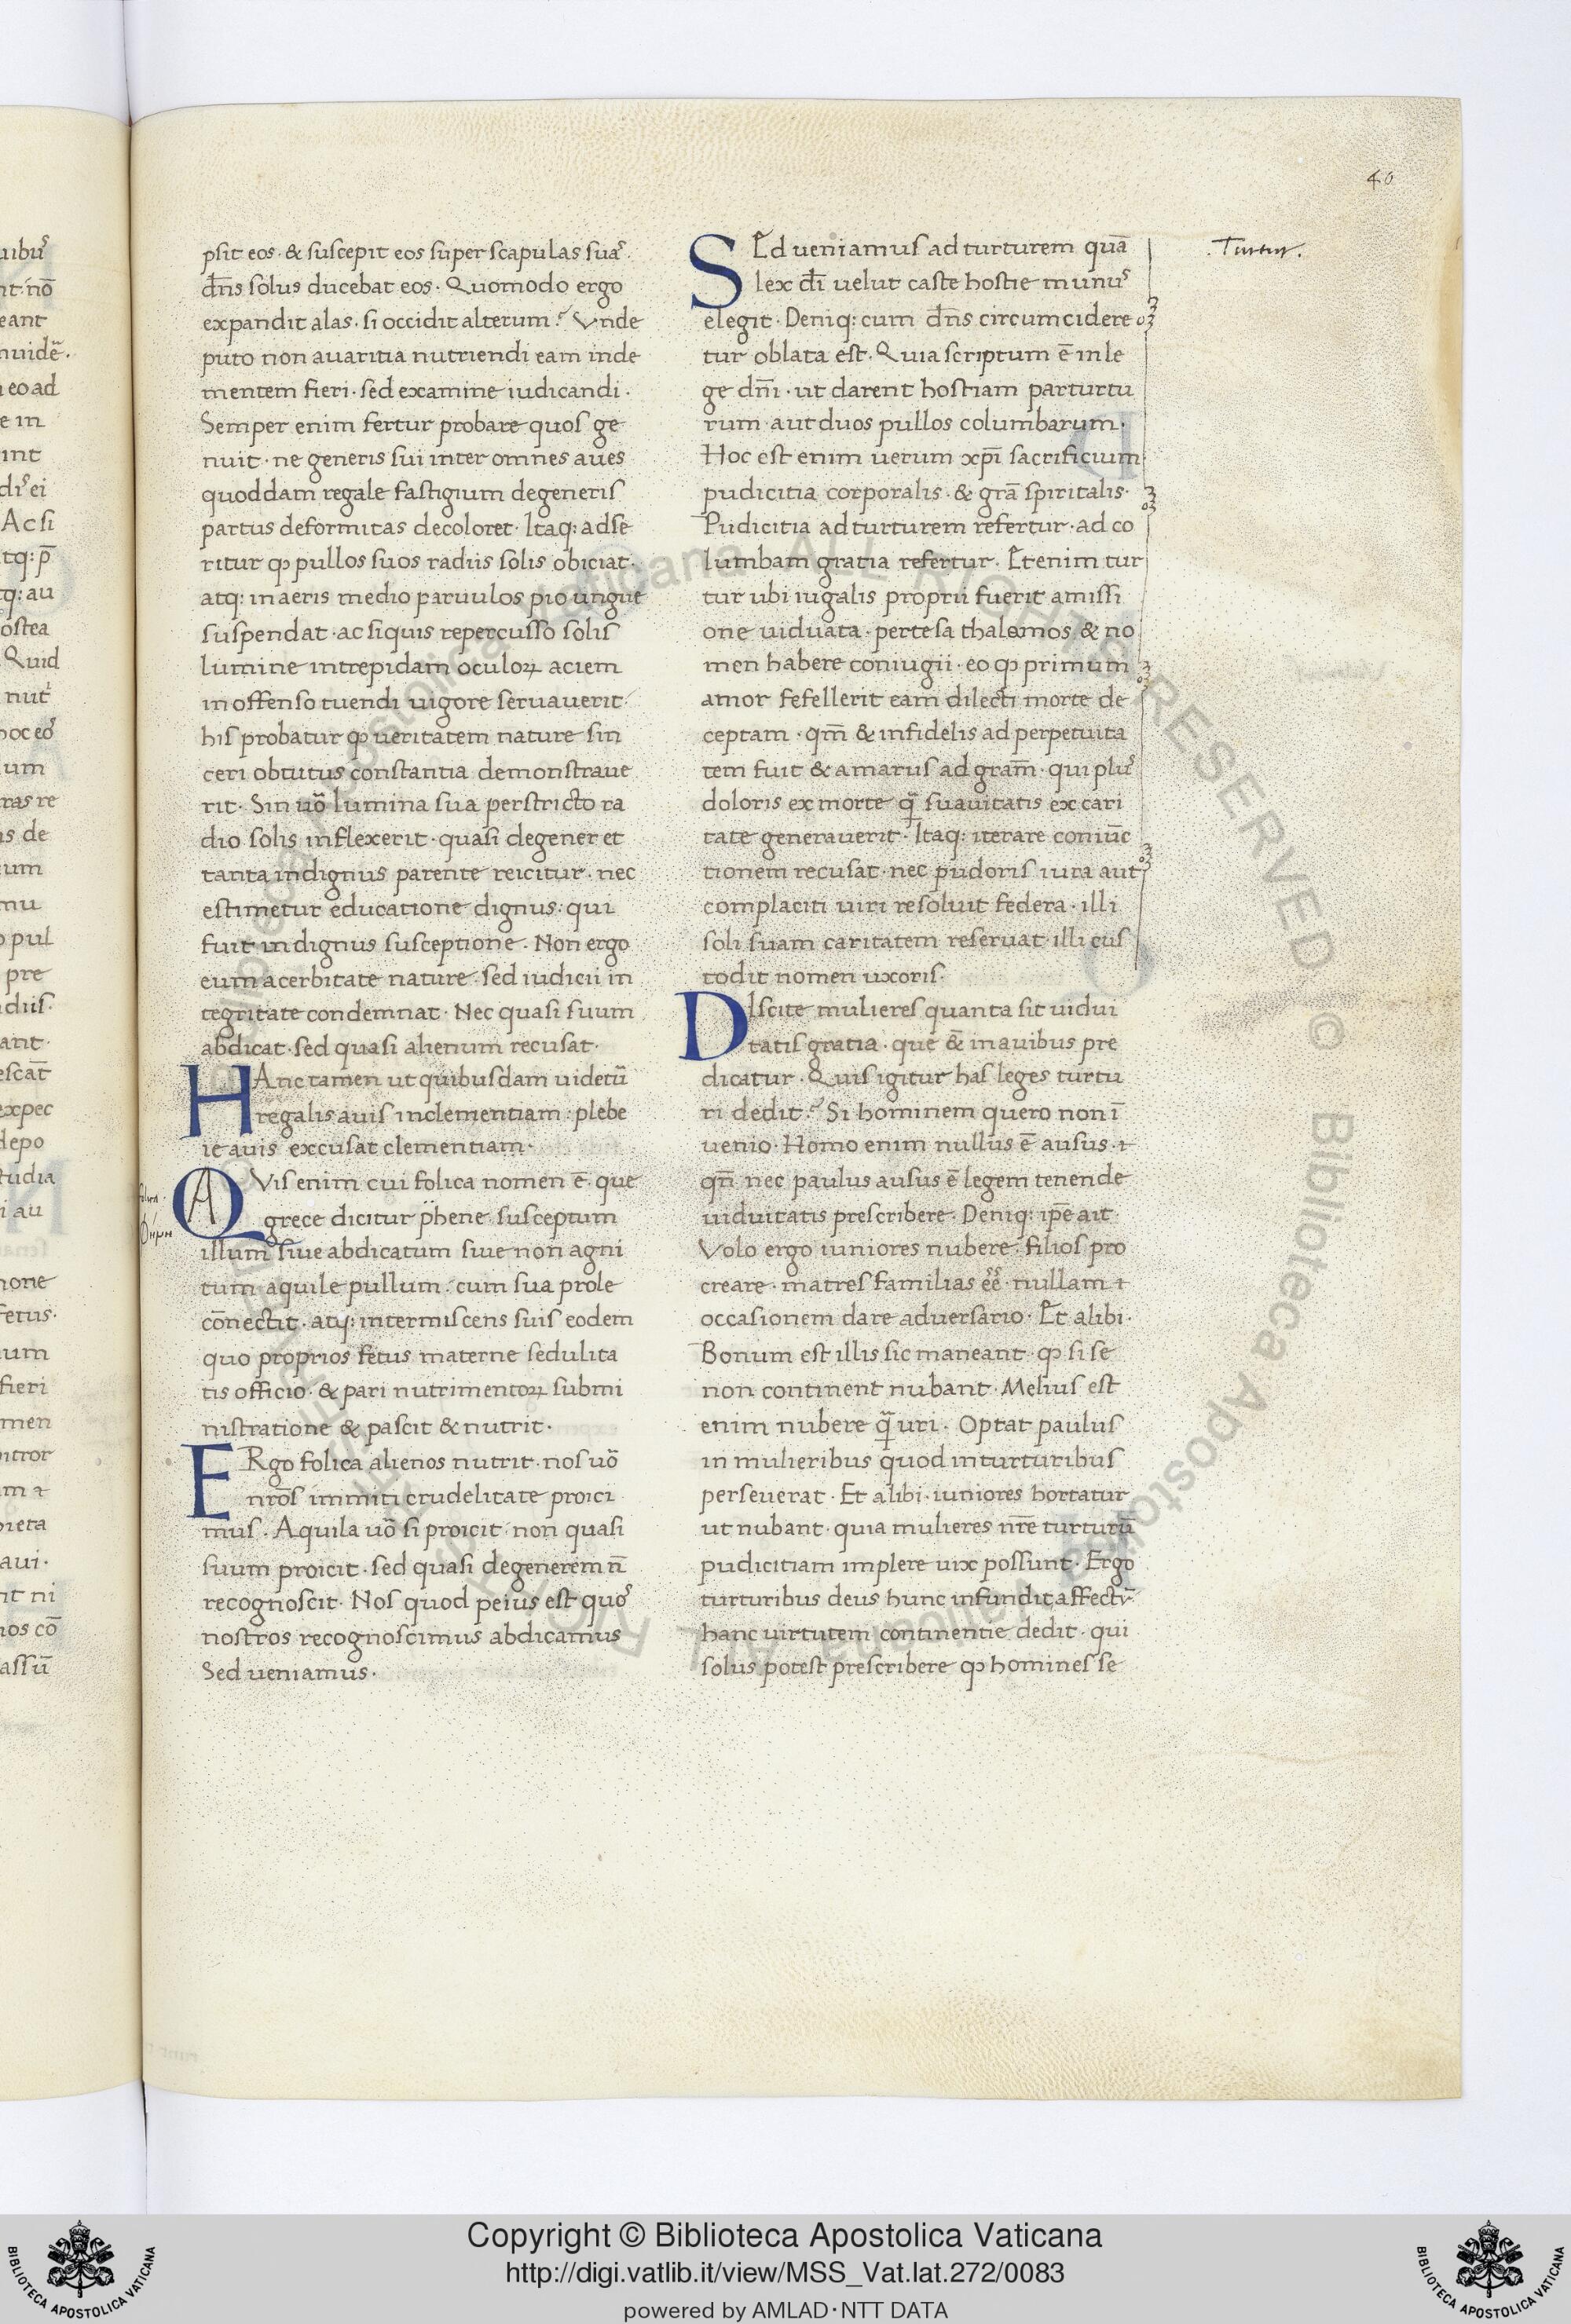 40
psit eos · & suscepit eos super scapulas suaꝰ ·
dn̄s solus ducebat eos · Quomodo ergo
expandit alas · si occidit alterum? Vnde
puto non auaritia nutriendi eam inde
mentem fieri · sed examine iudicandi ·
Semper enim fertur probare quos ge
nuit · ne generis sui inter omnes aues
quoddam regale fastigium degeneris
partus deformitas decoloret · Itaq: adse
ritur ꝙ pullos suos radiis solis obiciat ·
atq: in aeris medio paruulos pio ungue
suspendat · ac siquis repercusso solis
lumine intrepidam oculoꝝ aciem
inoffenso tuendi uigore seruauerit ·
his probatur ꝙ ueritatem nature sin
ceri obtutus constantia demonstraue
rit · Sin uo᷑ lumina sua perstricto ra
dio solis inflexerit · quasi degener et
tanta indignus parente reicitur · nec
estimetur educatione dignus: qui
fuit indignus susceptione · Non ergo
eum acerbitate nature · sed iudicii in
tegritate condemnat · Nec quasi suum
abdicat · sed quasi alienum recusat ·
HAnc tamen ut quibusdam uidetũ
regalis auis inclementiam: plebe
ie auis excusat clementiam ·
QVis enim cui folica nomen ē · que
grece dicitur phene susceptum
illum siue abdicatum siue non agni
tum aquile pullum: cum sua prole
cōnectit · atq: intermiscens suis eodem
quo proprios fetus materne sedulita
tis officio · & pari nutrimentoꝝ submi
nistratione & pascit & nutrit ·
ERgo folica alienos nutrit · nos uo᷑
nr̄os immiti crudelitate proici
mus · Aquila uo᷑ si proicit · non quasi
suum proicit · sed quasi degenerem n̄
recognoscit · Nos quod peius est quoꝰ
nostros recognoscimus abdicamus
Sed ueniamus ·
SEd ueniamus ad turturem quā
lex dī uelut caste hostie munuꝰ
elegit · Deniq: cum dn̄s circumcidere
tur oblata est · Quia scriptum ē in le
ge dn̄i · ut darent hostiam par turtu
rum aut duos pullos columbarum ·
Hoc est enim uerum xp̄i sacrificium
pudicitia corporalis · & grā spiritalis ·
Pudicitia ad turturem refertur · ad co
lumbam gratia refertur · Etenim tur
tur ubi iugalis proprii fuerit amissi
one uiduata · pertesa thalamos & no
men habere coniugii · eo ꝙ primum
amor fefellerit eam dilecti morte de
ceptam · qm̄ & infidelis ad perpetuita
tem fuit & amarus ad gram̄ · qui pluꝰ
doloris ex morte q̃ suauitatis ex cari
tate generauerit · Itaq: iterare coniūc
tionem recusat · nec pudoris iura aut
complaciti uiri resoluit federa · illi
soli suam caritatem reseruat · illi cus
todit nomen uxoris ·
DIscite mulieres quanta sit uidui
tatis gratia · que & in auibus pre
dicatur · Quis igitur has leges turtu
ri dedit? Si hominem quero non ī
uenio · Homo enim nullus ē ausus ·
qn̄ nec paulus ausus ē legem tenende
uiduitatis prescribere · Deniq: ip̄e ait ·
Volo ergo iuniores nubere · filios pro
creare · matres familias eē · nullam
occasionem dare aduersario · Et alibi ·
Bonum est illis sic maneant · ꝙ si se
non continent nubant · Melius est
enim nubere q̃ uri · Optat paulus
in mulieribus quod in turturibus
perseuerat · Et alibi · iuniores hortatur
ut nubant · quia mulieres nr̄e turturū
pudicitiam implere uix possunt · Ergo
turturibus deus hunc infundit affectū
hanc uirtutem continentie dedit · qui
solus potest prescribere ꝙ homines se
. Turtur .
Copyright © Biblioteca Apostolica Vaticana
http://digi.vatlib.it/view/MSS_Vat.lat.272/0083
powered by AMLAD·NTT DATA
BIBLIOTECA APOSTOLICA VATICANA
BIBLIOTECA APOSTOLICA VATICANA